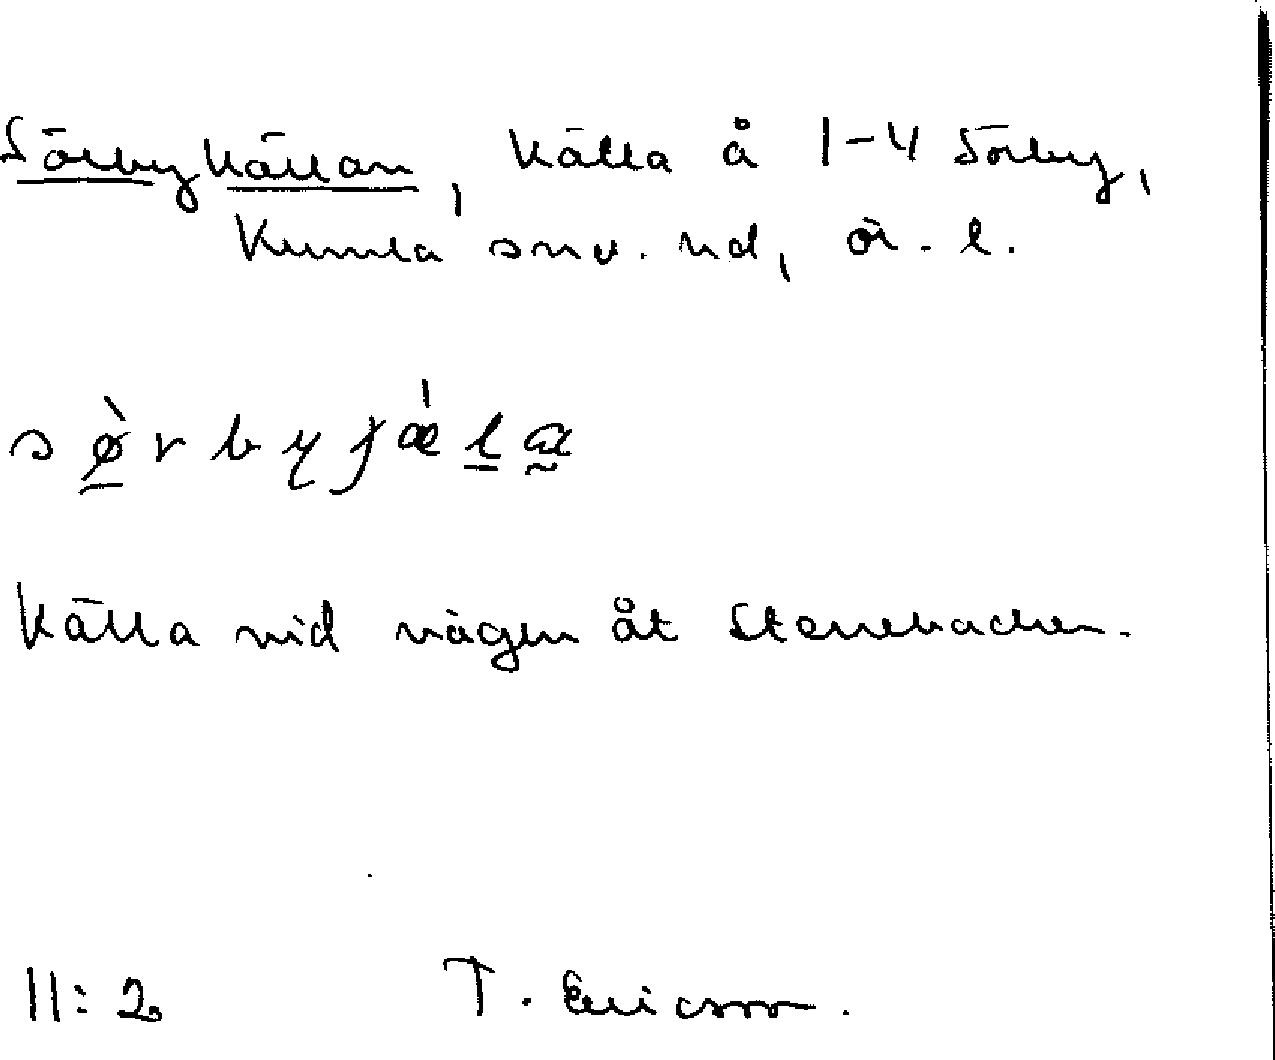 Sörbykällan, källa å 1-4 Sörby,
Kumla snv. hd, ör. l.
sø̀rbyfǽla
Källa vid vägen åt Stenebacken.
11:2. T. Ericsson.